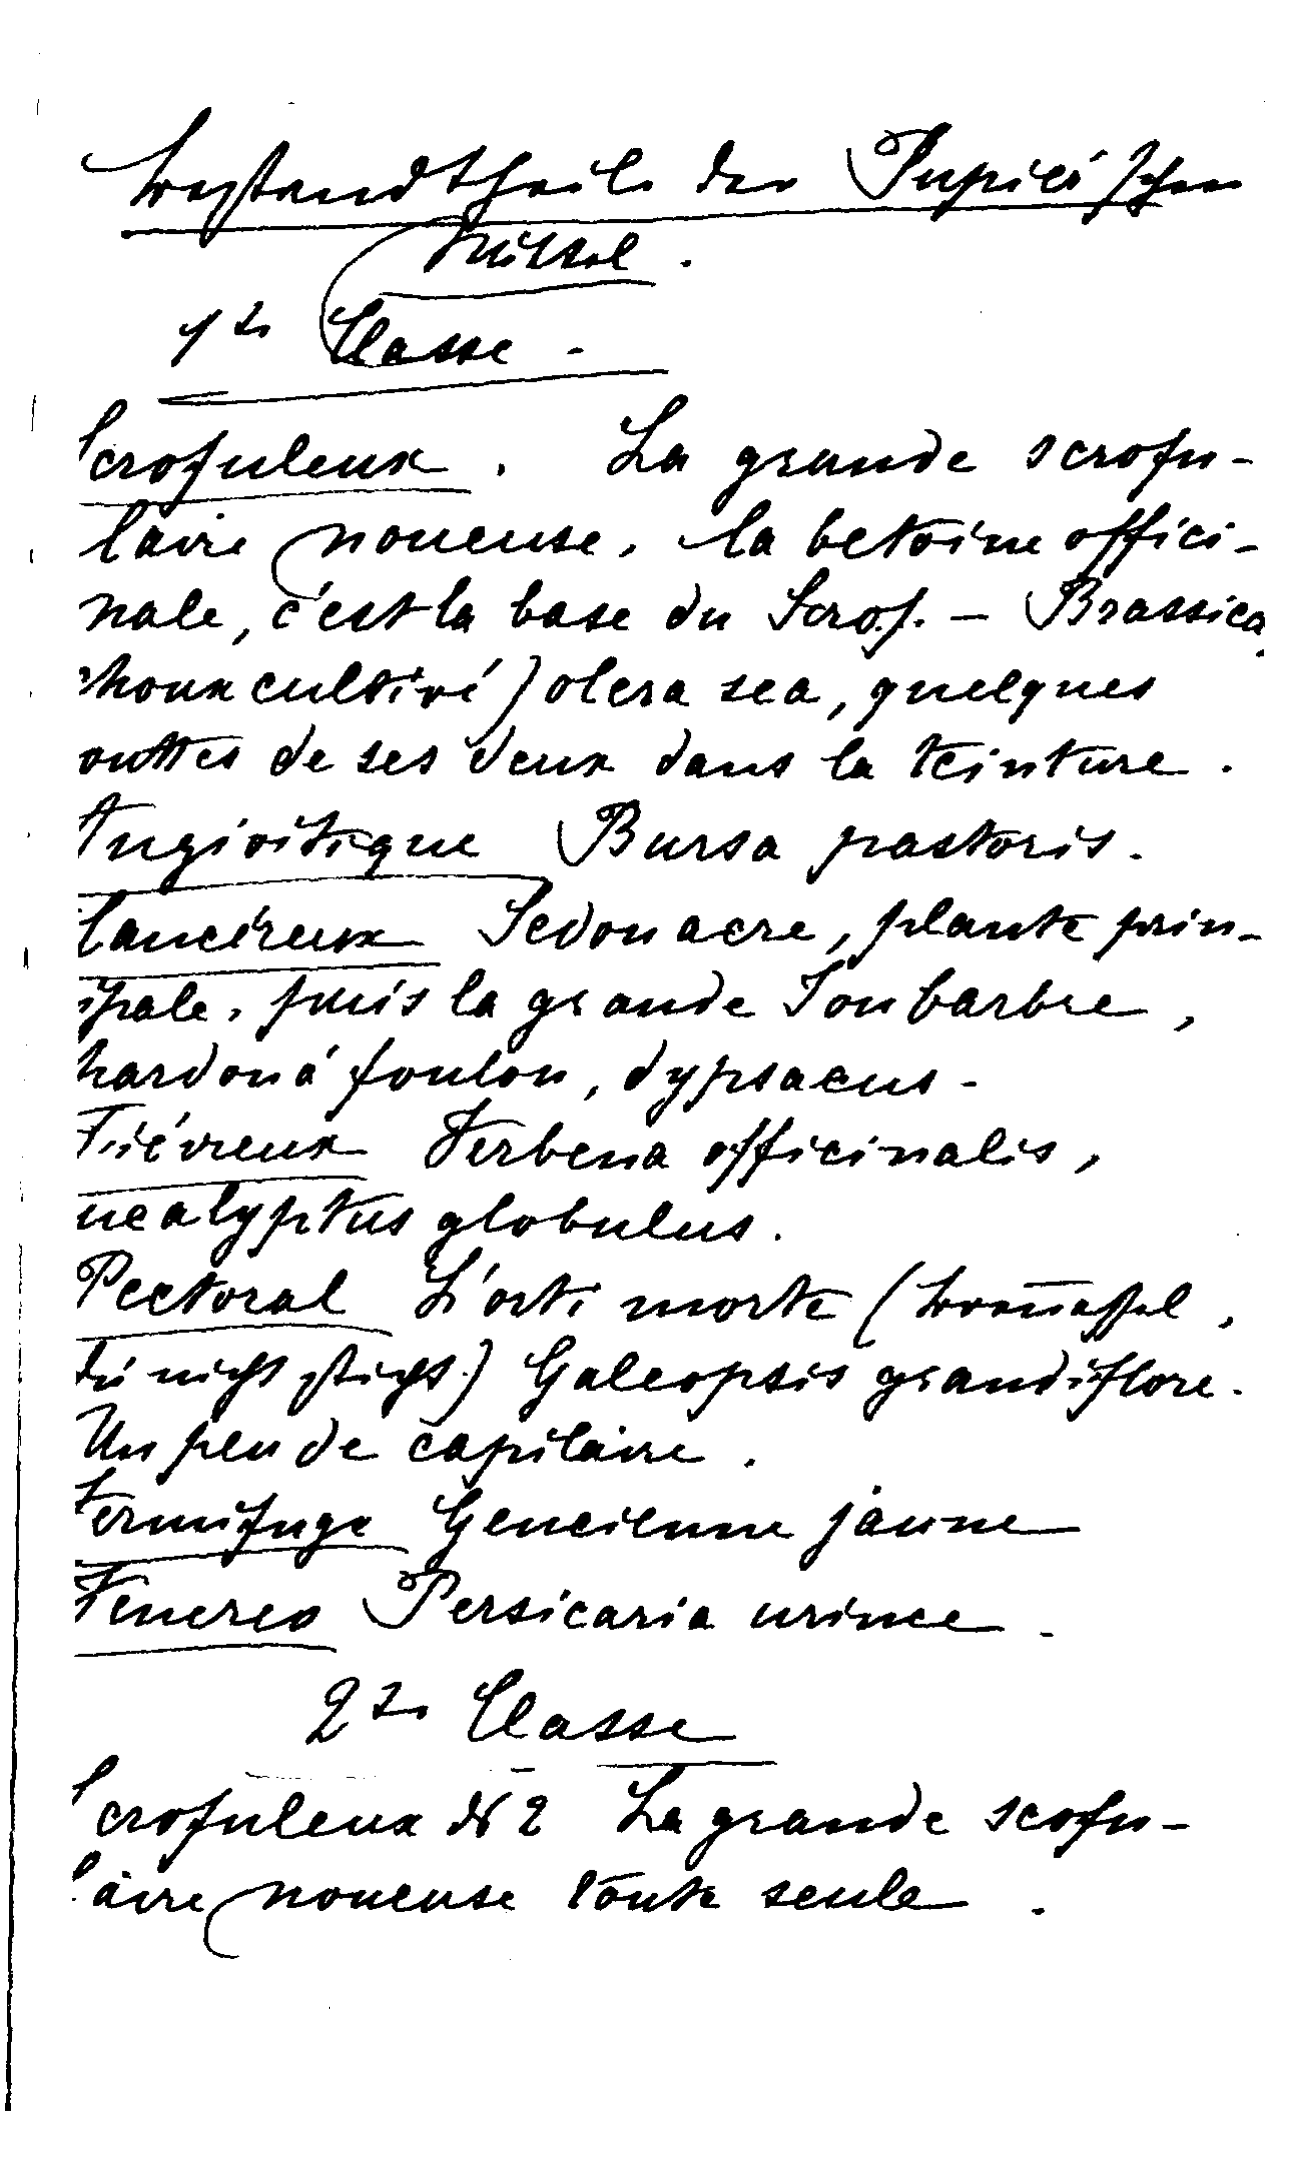 Bestandtheile der Pupier'schen
Mittel.
1te Classe.
Scrofuleux. La grande scrofu-
laire noueuse, la betoine offici-
nale, c'est la base du Scrof. — Brassica
choux cultivé) olera sea, quelques
outtes de ses deux dans la teinture.
Angioitique Bursa pastoris.
Cancéreux Sedon acre, plante prin-
ipale, puis la grande Joubarbre,
hardon á foulon, dypsacus.
Fiévreux Verbena officinalis,
ucalyptus globulus.
Pectoral L'orti morte (Brennessel,
die nicht sticht.) Galeopsis grandiflore.
Un peu de capilaire.
Vermifuge Gencienne jaune
Venereo Persicaria urince.
2te Classe
Scrofuleux No 2 La grande scofu-
laire noueuse toute seule.